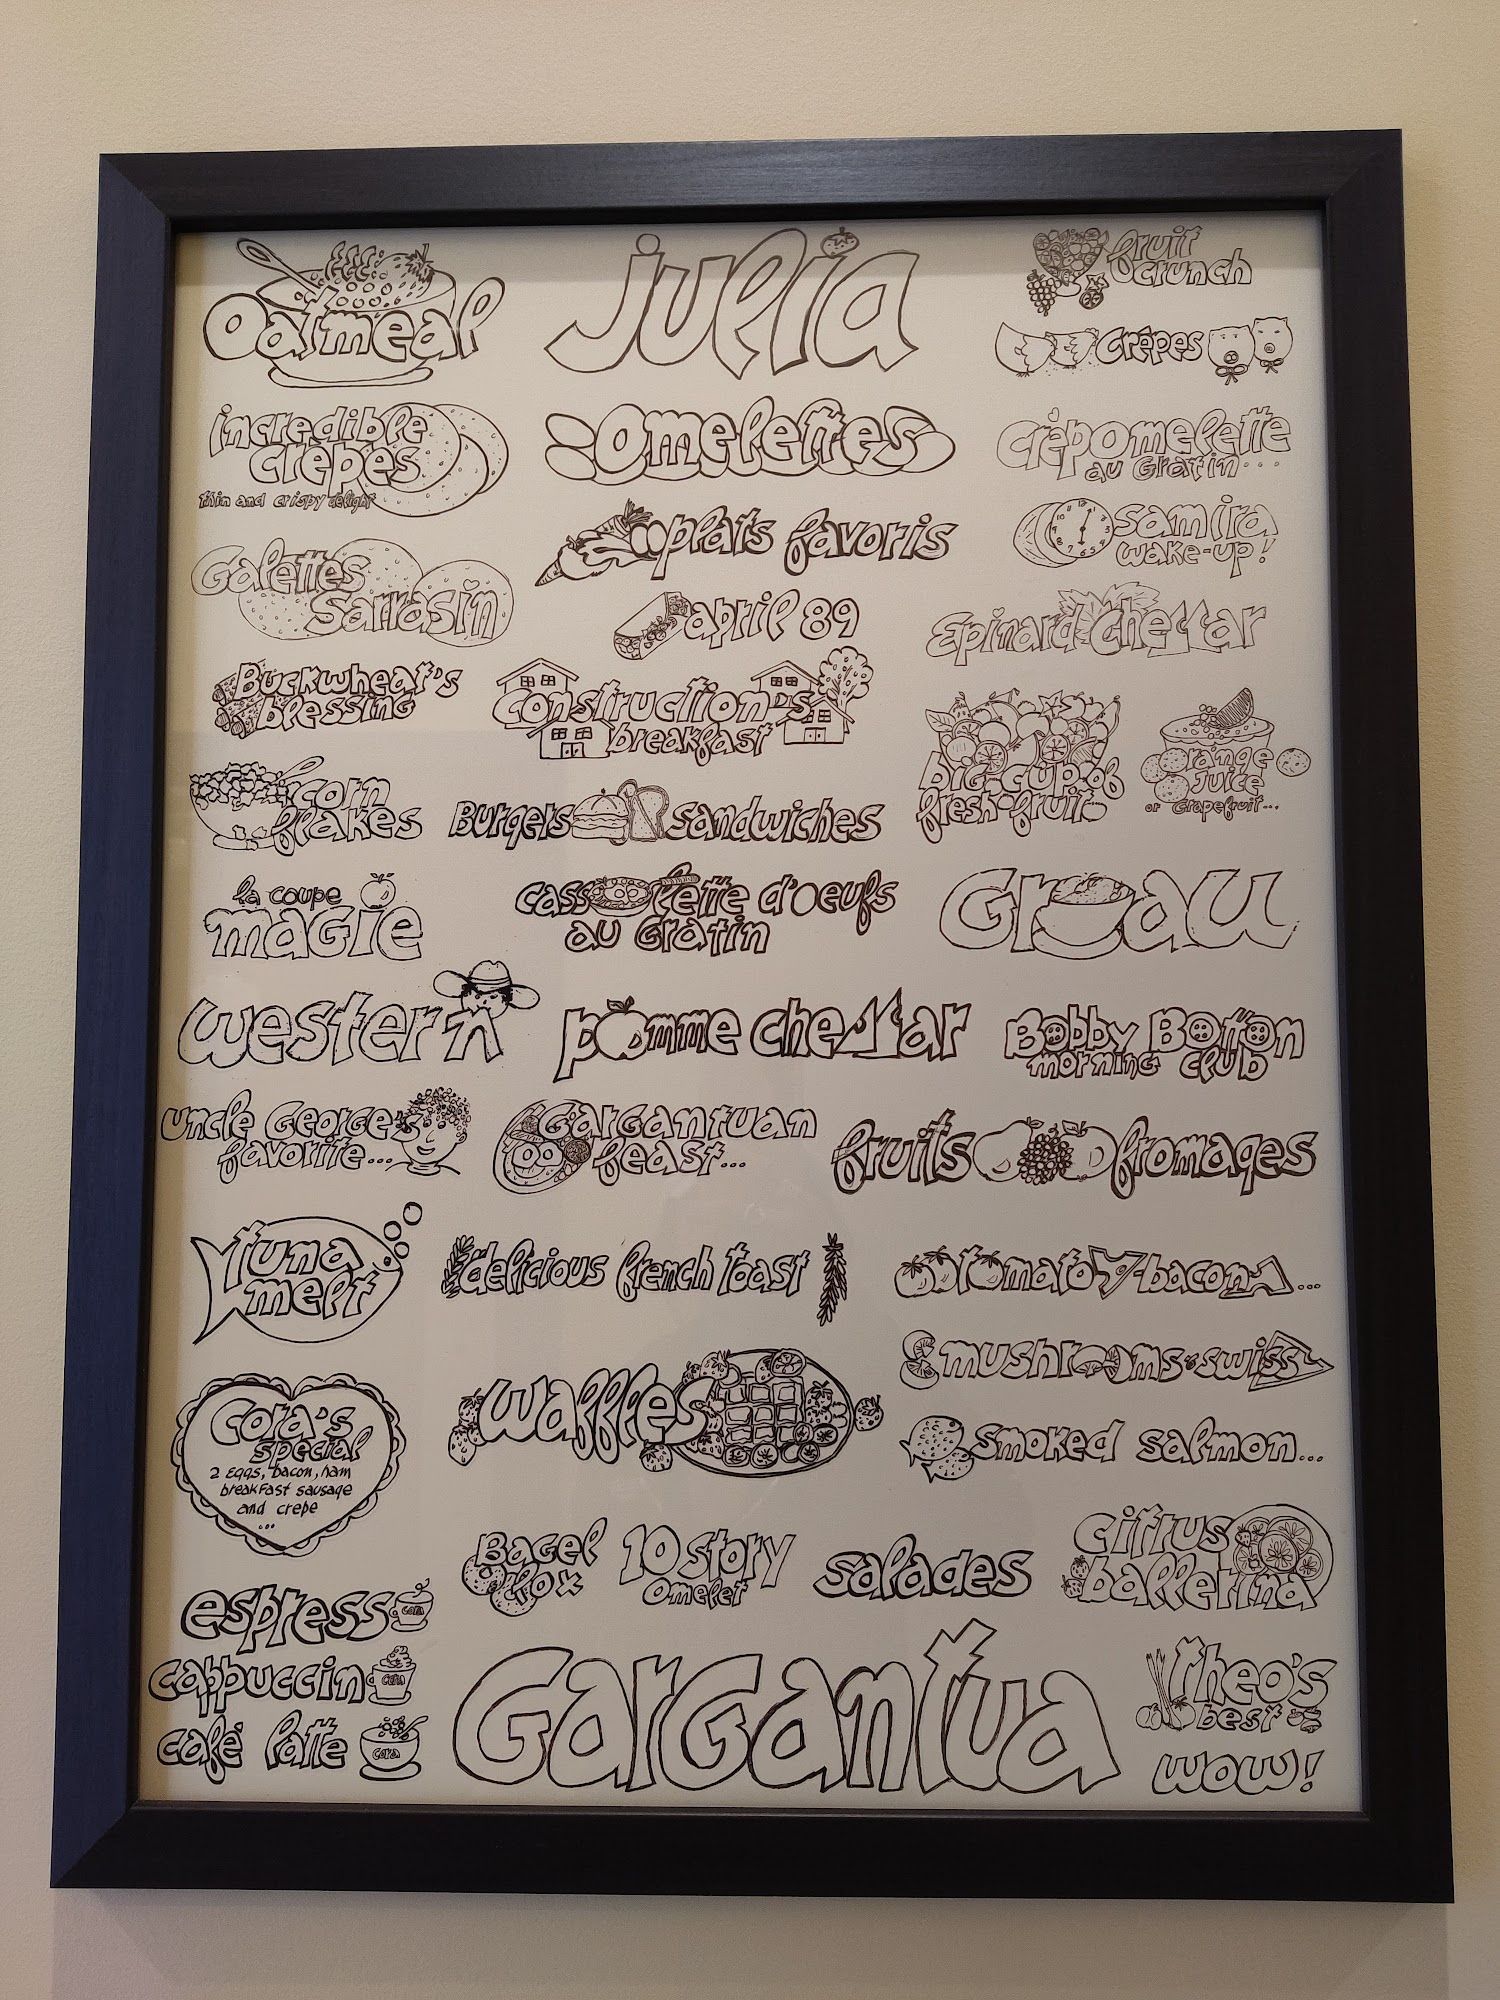 Oatmeal
julia
fruit
crunch
Crêpes
incredible
crêpes
thin and crispy delight
omelettes
crêpomelette
au Gratin...
plats favoris
samira
wake-up!
Galettes
Sarrasin
april 89
Epinard-cheddar
Buckwheat's
blessing
Construction's
breakfast
big cup of
fresh fruit
Orange
Juice
or Grapefruit...
corn
flakes
Burgers sandwiches
la coupe
magie
cassolette d'oeufs
au Gratin
Gruau
western
pomme cheddar
Bobby Botton
morning club
uncle George's
favorite...
Gargantuan
feast...
fruits fromages
tuna
melt
delicious french toast
tomato bacon...
mushrooms swiss
waffles
Cora's
special
2 eggs, bacon, ham
breakfast sausage
and crêpe
...
smoked salmon...
Bagel
lox
10 story
omelet
salades
citrus
ballerina
espresso
cora
cappuccino
cora
café latte
cora
Gargantua
Theo's
best
wow!